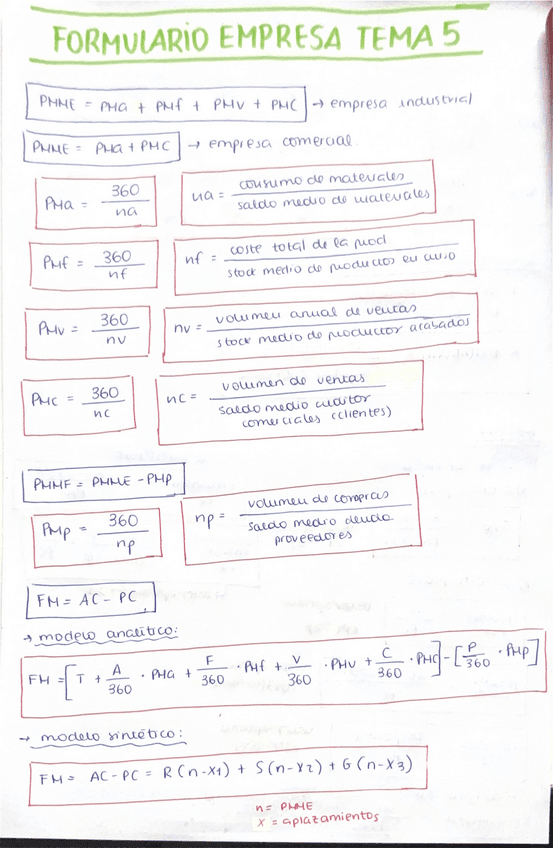 FORMULARIO EMPRESA TEMA 5
PMME = PMa + PMf + PMv + PMC → empresa industrial
PMME = PMa + PMC → empresa comercial.
PMa = 360 / na
na = consumo de materiales / saldo medio de materiales
PMf = 360 / nf
nf = coste total de la prod / stock medio de productos en curso
PMv = 360 / nv
nv = volumen anual de ventas / stock medio de productos acabados
PMC = 360 / nc
nc = volumen de ventas / saldo medio
comerciales (clientes)
PMMF = PMME - PMp
PMp = 360 / np
np = volumen de compras / saldo medio deuda
proveedores
FM = AC - PC
→ modelo analítico:
FM = [T + A/360 · PMa + F/360 · PMf + V/360 · PMv + C/360 · PMC] - [P/360 · PMp]
→ modelo sintético:
FM = AC - PC = R (n-x1) + S (n-x2) + G (n-x3)
n = PMME
x = aplazamientos